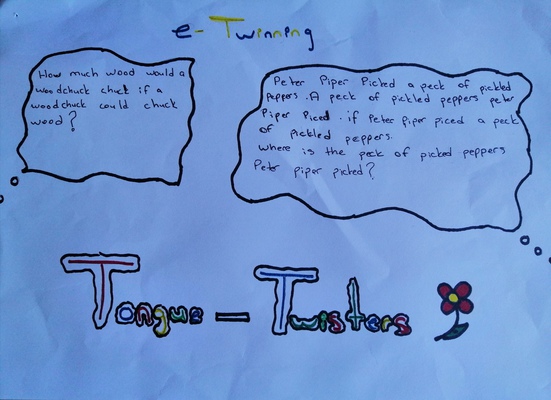 e-Twinning
How much wood would a
woodchuck chuck if a
woodchuck could chuck
wood?
Peter Piper Picked a peck of pickled
Peppers. A peck of pickled peppers peter
Piper Piced. if Peter piper piced a peck
of pickled peppers.
where is the peck of picked peppers
Peter piper picked?
Tongue - Twisters